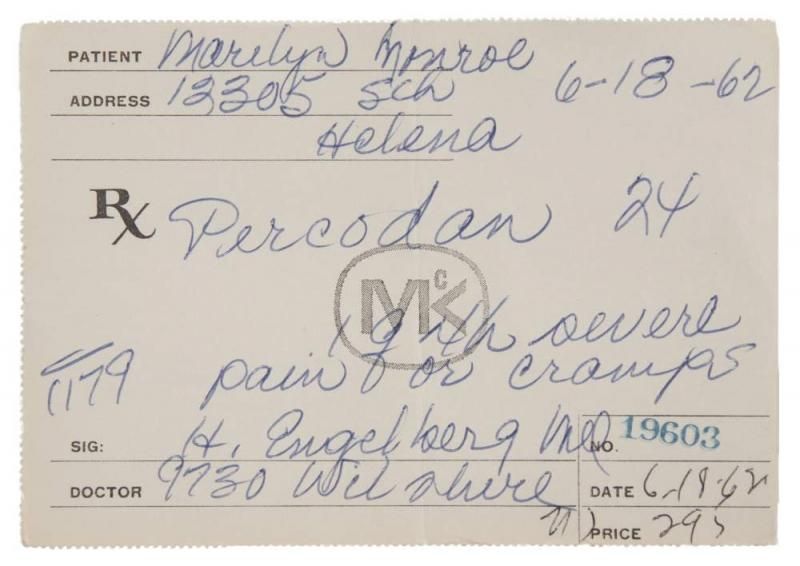 PATIENT Marilyn Monroe
ADDRESS 13305 5th 6-18-62
Helena
Rx Percodan 24
McK
1 q 4h severe
pain or cramps
1179
SIG: H. Engelberg MD NO. 19603
DOCTOR 9730 Wilshire DATE 6-18-62
PRICE 295